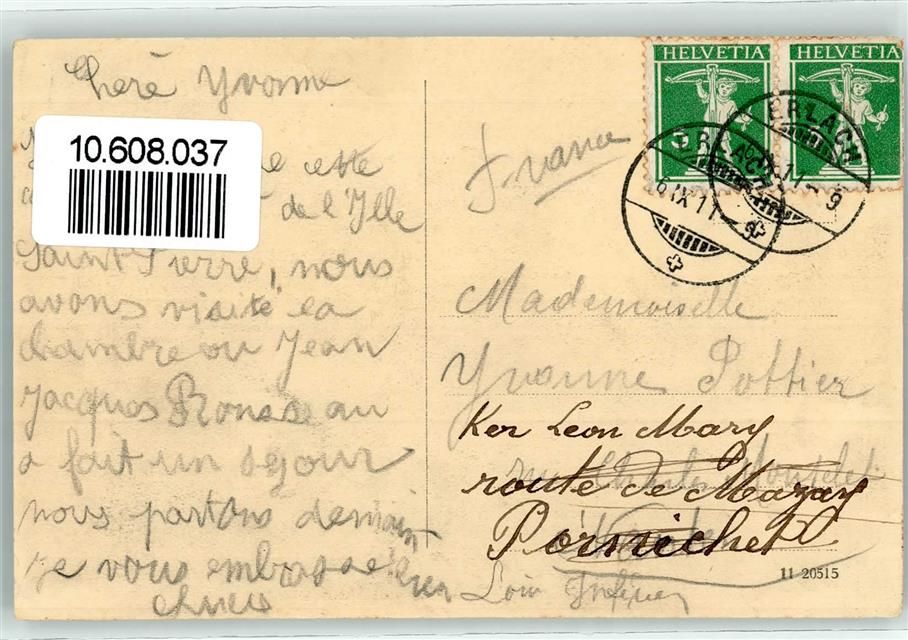 Cheré Yvonne
10.608.037
cette
de l'Ille
Saint Pierre, nous
avons visité la
chambre ou Jean
Jacques Rousseau
a fait un séjour
nous partons demain
je vous embrasse bien
France
HELVETIA
HELVETIA
5
ERLACH
6.IX.11-9
ERLACH
6.IX.11-9
Mademoiselle
Yvonne Pottier
Ker Leon Mary
route de Mazay
Pornichet
Loir Inférieu
11 20515